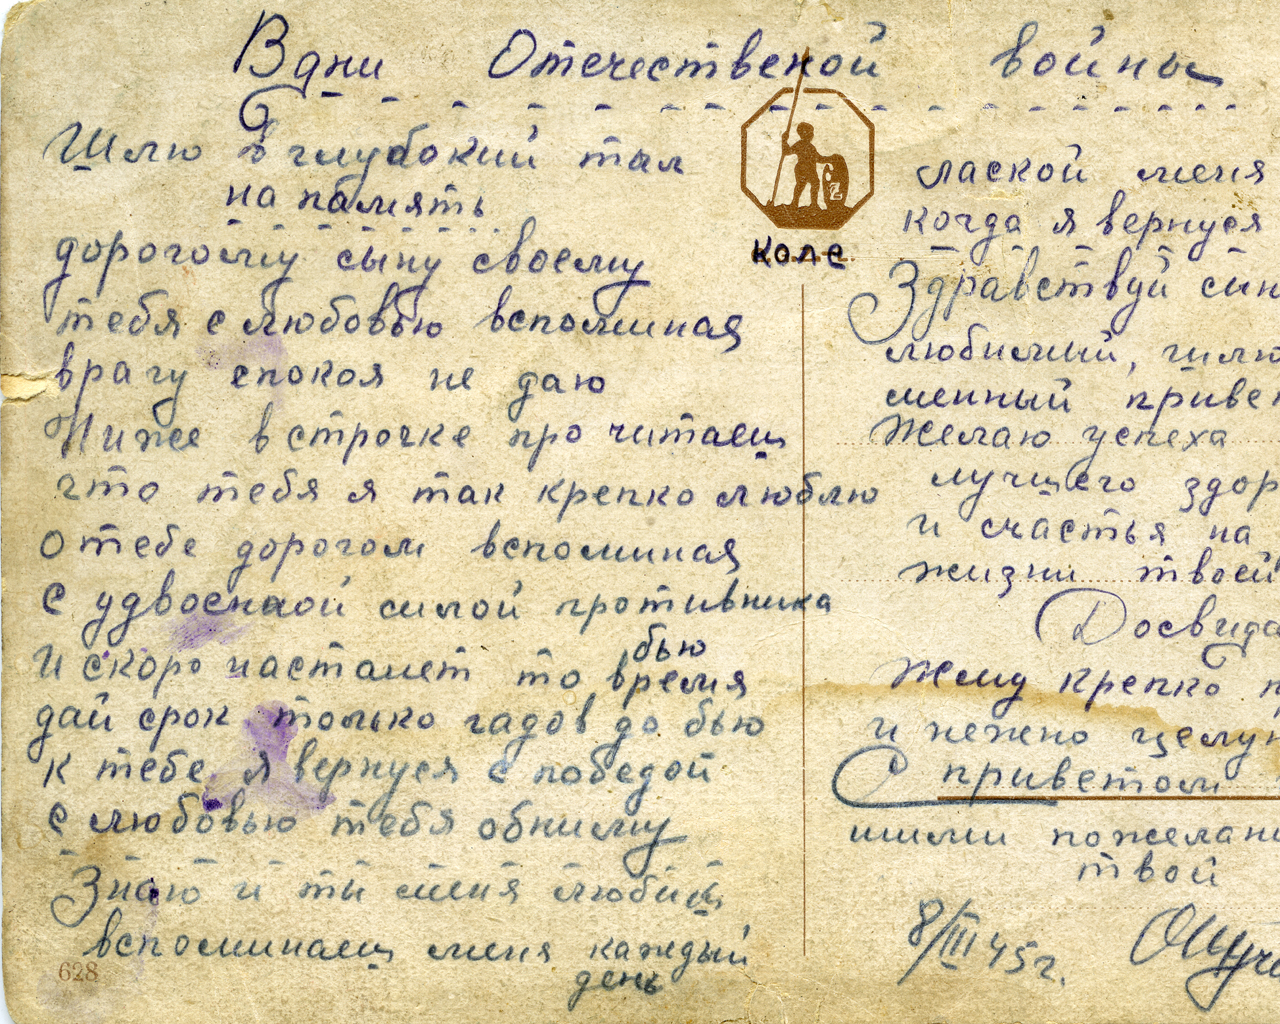 В дни Отечественой войны
Шлю в глубокий тыл
на память
дорогому сыну своему
тебя с любовью вспоминая
врагу спокоя не даю
Ниже в строчке прочитаещ
что тебя я так крепко люблю
о тебе дорогом вспоминая
с удвоеной силой противника
бью
И скоро настанет то время
дай срок только гадов добью
к тебе я вернуся с победой
с любовью тебя обниму
Знаю и ты меня любищ
вспоминаещ меня каждый
день
628
коле
лаской меня
когда я вернуся
Здравствуй син
любимый, шлю
менный привет
Желаю успеха
лучщего здор
и счастья на
жизни твоей
Досвида
Жму крепко
и нежно целу
С приветом
ишими пожелан
твой
8/III 45г.